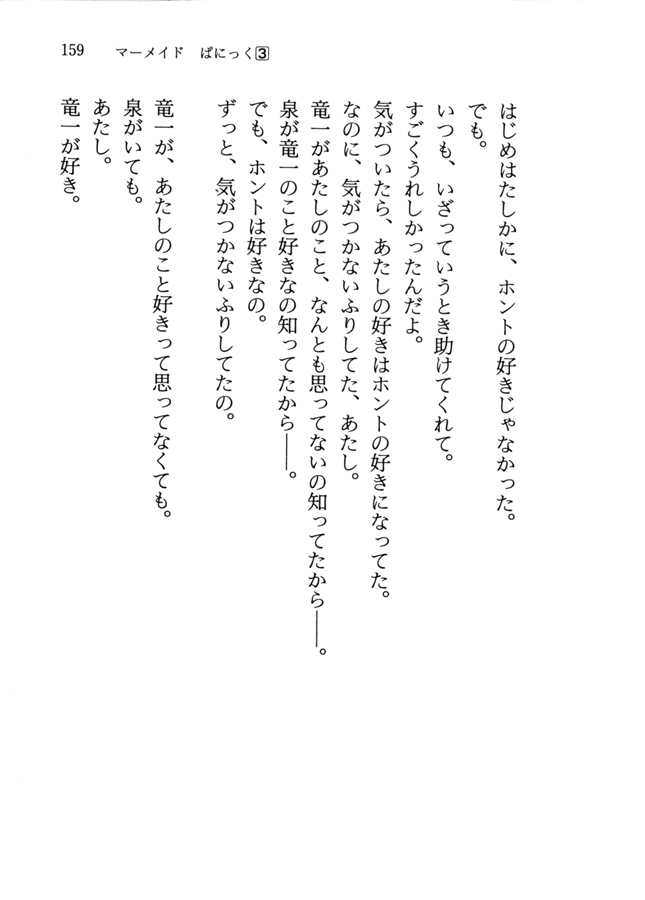 159 マーメイド ぱにっく3
はじめはたしかに、ホントの好きじゃなかった。
でも。
いつも、いざっていうとき助けてくれて。
すごくうれしかったんだよ。
気がついたら、あたしの好きはホントの好きになってた。
なのに、気がつかないふりしてた、あたし。
竜一があたしのこと、なんとも思ってないの知ってたから――。
泉が竜一のこと好きなの知ってたから――。
でも、ホントは好きなの。
ずっと、気がつかないふりしてたの。
竜一が、あたしのこと好きって思ってなくても。
泉がいても。
あたし。
竜一が好き。